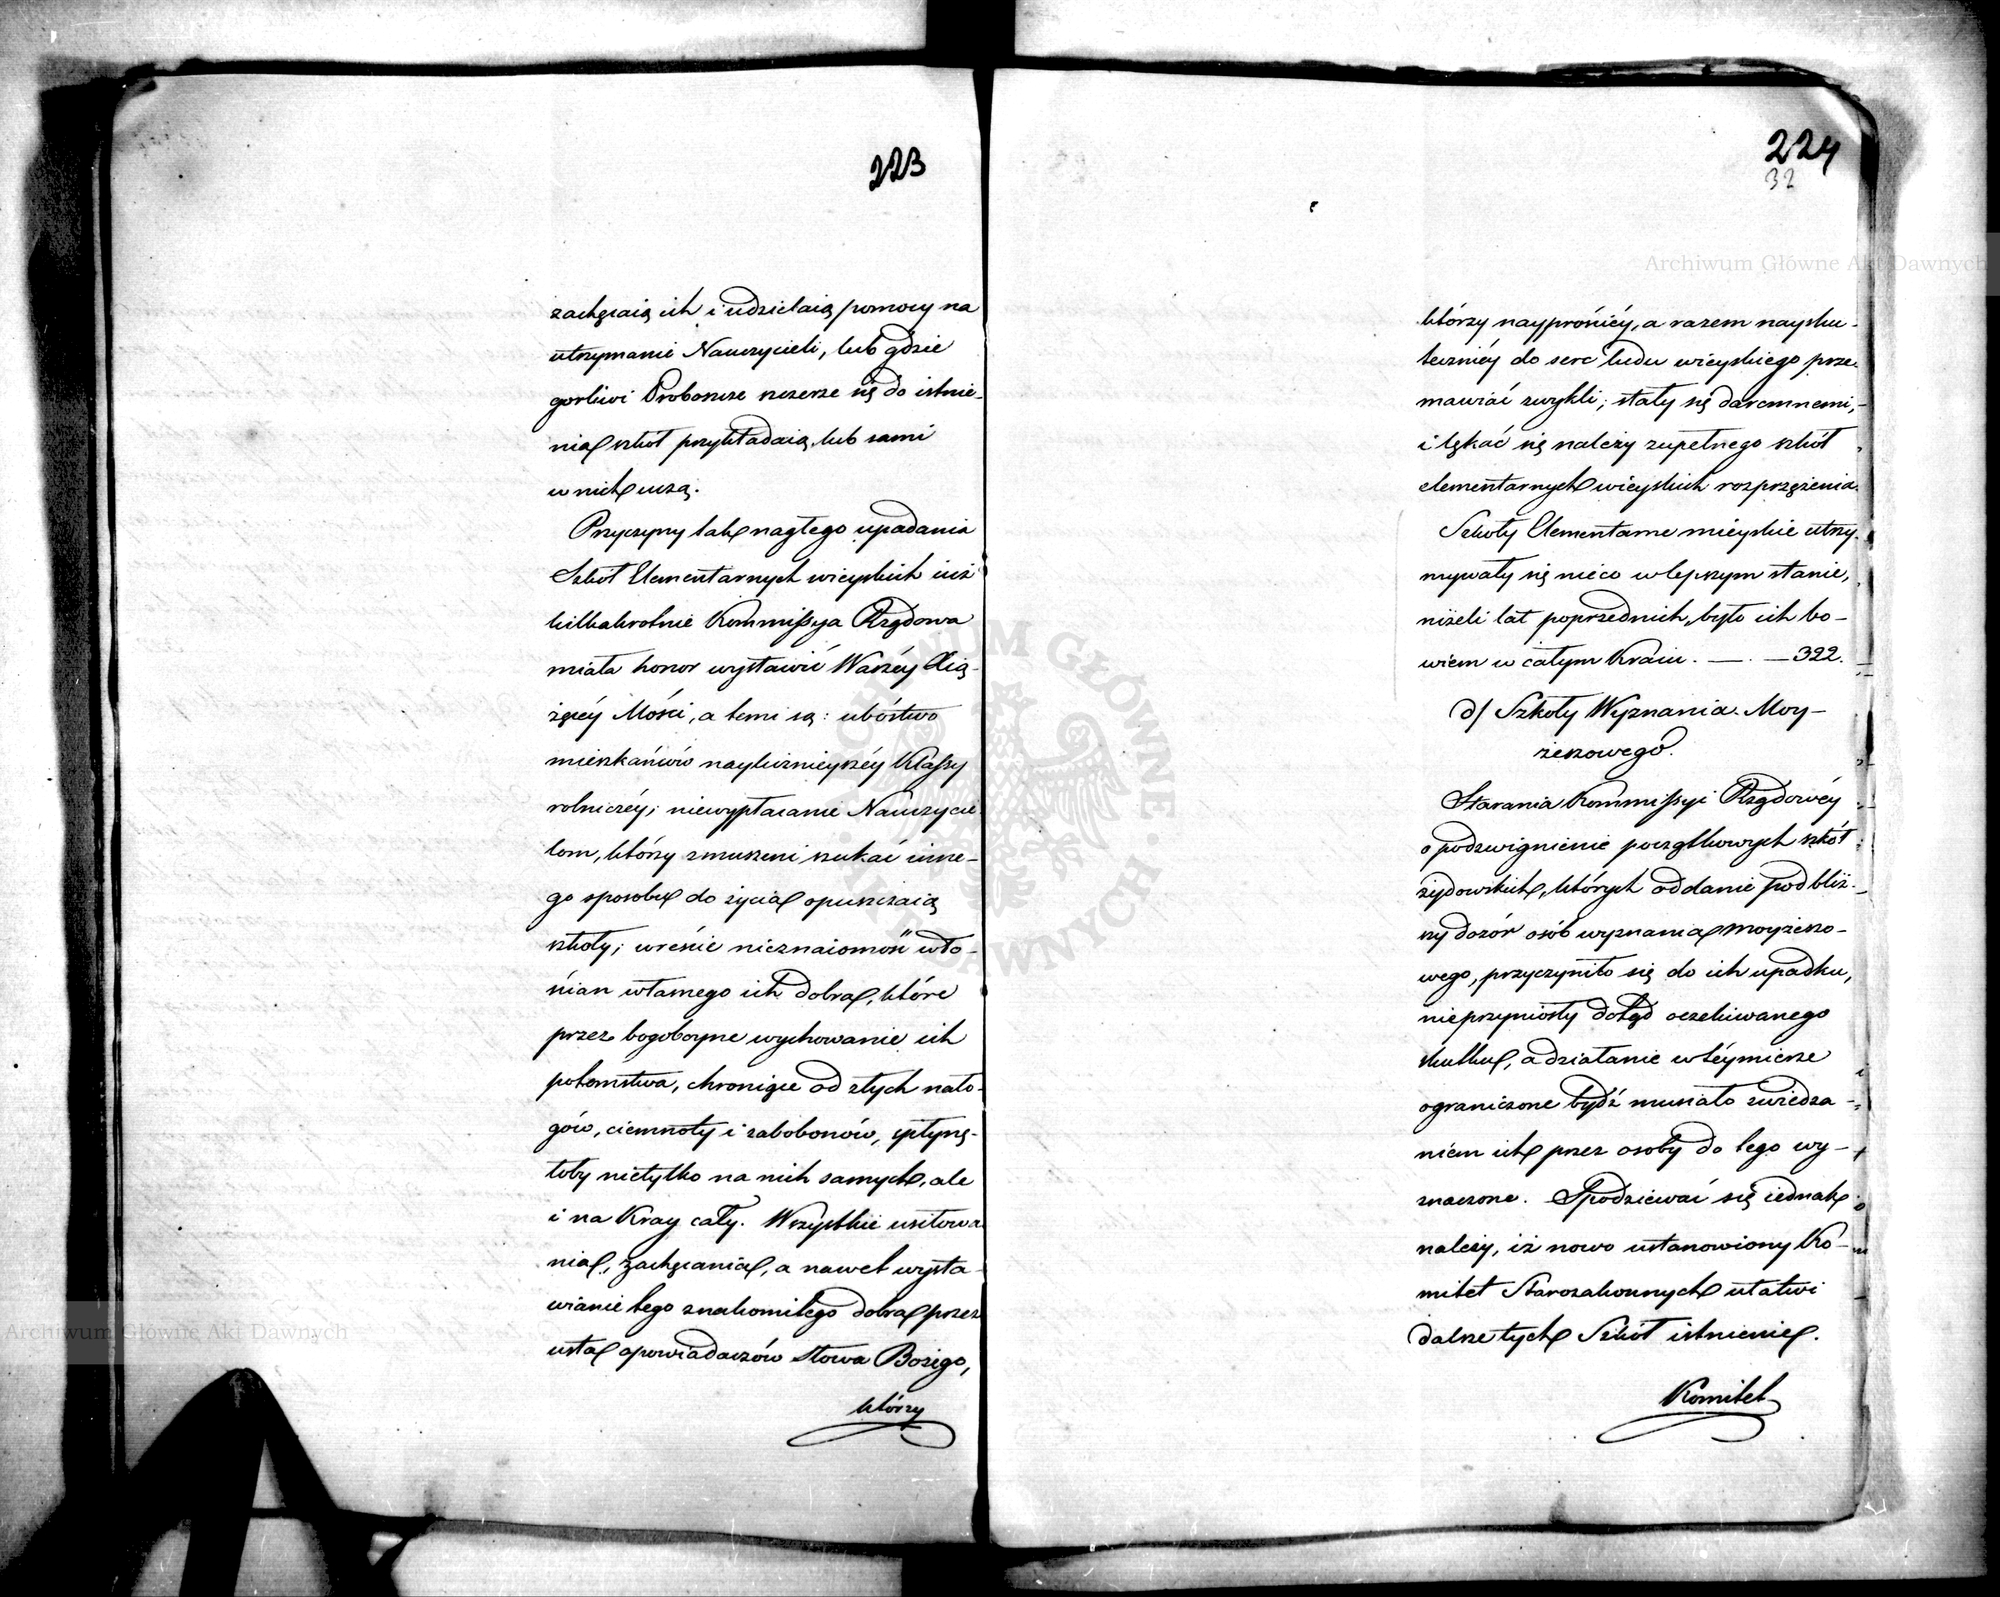 223
zachęcaią ich i udzielaią pomocy na
utrzymanie Nauczycieli, lub gdzie
gorliwi Proboszcze szczerze się do istnie-
nia szkół przykładaią, lub sami
w nich uczą.
Przyczyny tak nagłego upadania
Szkół Elementarnych wieyskich iuż
kilkakrotnie Kommissya Rządowa
miała honor wystawić Waszéy Xią-
żęcéy Mości, a temi są: ubóstwo
mieszkańców naylicznieyszéy Klassy
rolniczéy; niewypłacanie Nauczycie-
lom, którzy zmuszeni szukać inne-
go sposobu do życia opuszczaią
szkoły; wreście nieznaiomość wło-
ścian własnego ich dobra, które
przez bogoboyne wychowanie ich
potomstwa, chroniąc od złych nało-
gów, ciemnoty i zabobonów, spłynę-
łoby nietylko na nich samych, ale
i na Kray cały. Wszystkie usiłowa
nia, zachęcania, a nawet wysta-
wianie tego znakomitego dobra przez
usta opowiadaczów Słowa Bożego,
którzy
224
32
którzy nayprościéy, a razem naysku-
teczniéy do serc ludu wieyskiego prze-
mawiać zwykli; stały się daremnemi,
i lękać się należy zupełnego szkół
elementarnych wieyskich rozprzężenia.
Szkoły Elementarne mieyskie utrzy-
mywały się nieco w lepszym stanie,
niżeli lat poprzednich, było ich bo-
wiem w całym Kraiu. — . — 322.
d/ Szkoły Wyznania Moy-
żeszowego.
Starania Kommissyi Rządowéy
o podzwignienie początkowych szkół
żydowskich, których oddanie pod bliż-
szy dozór osób wyznania moyżeszo-
wego, przyczyniło się do ich upadku,
nieprzyniosły dotąd oczekiwanego
skutku, a działanie w téy mierze
ograniczone bydź musiało zwiedza-
niem ich przez osoby do tego wy-
znaczone. Spodziewać się iednak
należy, iż nowo ustanowiony Ko-
mitet Starozakonnych ułatwi
dalsze tych Szkół istnienie.
Komitet
Archiwum Główne Akt Dawnych
Archiwum Główne Akt Dawnych
ARCHIWUM GŁÓWNE AKT DAWNYCH